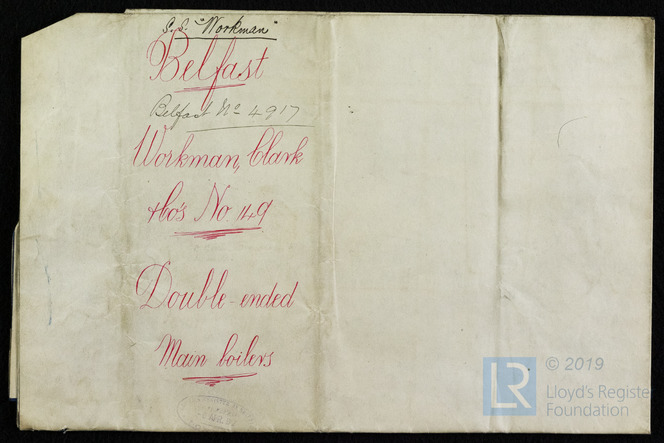 S.S. "Workman"
Belfast
Belfast No 4917
Workman, Clark
& Co's No. 149
Double-ended
Main boilers
LR
© 2019
Lloyd's Register
Foundation